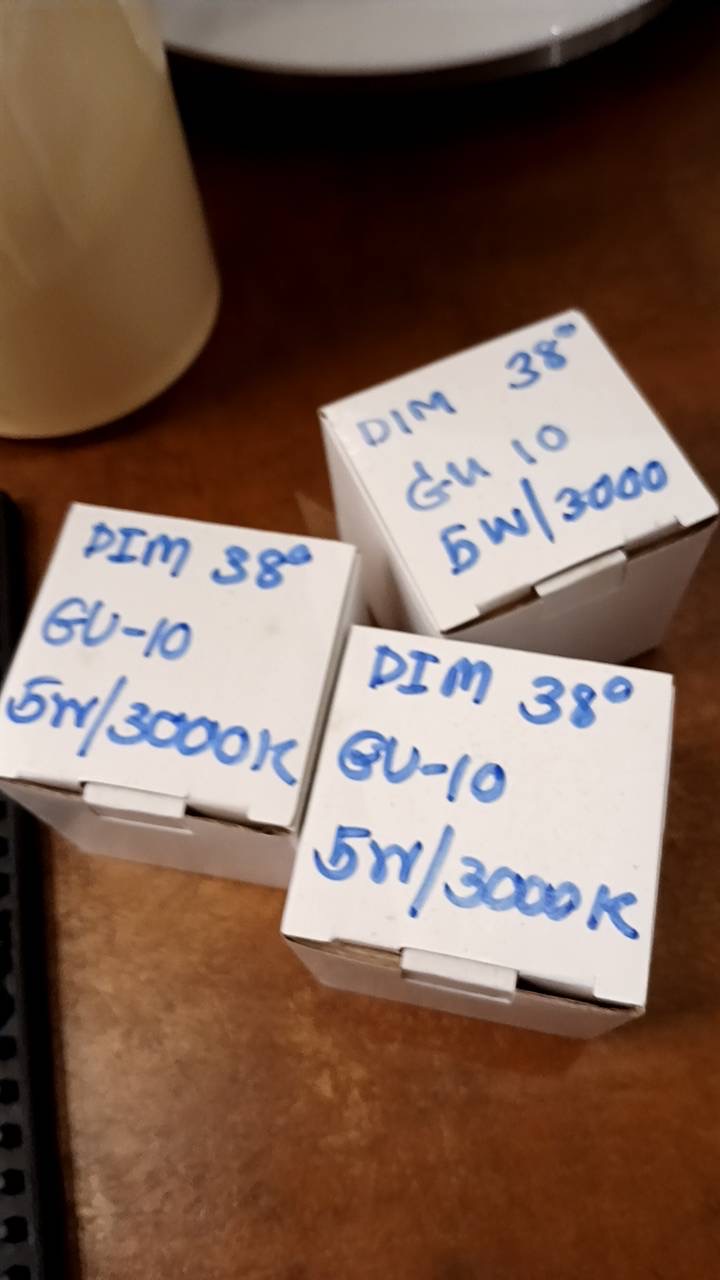 DIM 38°
GU 10
5W/3000
DIM 38°
GU-10
5W/3000K
DIM 38°
GU-10
5W/3000K